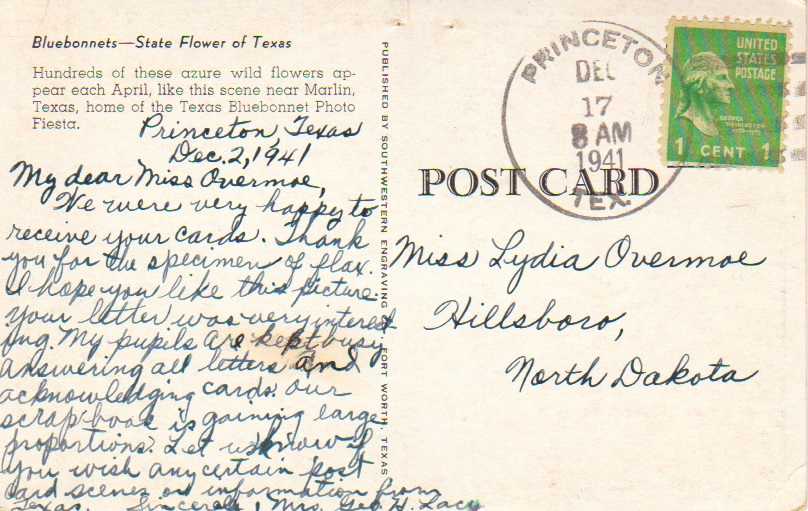 Bluebonnets—State Flower of Texas
Hundreds of these azure wild flowers ap-
pear each April, like this scene near Marlin,
Texas, home of the Texas Bluebonnet Photo
Fiesta.
Princeton, Texas
Dec. 2, 1941
My dear Miss Overmoe,
We were very happy to
receive your cards. Thank
you for the specimen of flax.
I hope you like this picture.
Your letter was very interest
ing. My pupils are kept busy
answering all letters and
acknowledging cards. Our
scrap-book is gaining large
proportions. Let us know if
you wish any certain post
card scenes or information from
Texas. Sincerely, Mrs. Geo. H. Lacy
PUBLISHED BY SOUTHWESTERN ENGRAVING FORT WORTH, TEXAS
PRINCETON
DEC
17
8 AM
1941
TEX.
UNITED
STATES
POSTAGE
GEORGE
WASHINGTON
1 CENT 1
POST CARD
Miss Lydia Overmoe
Hillsboro,
North Dakota